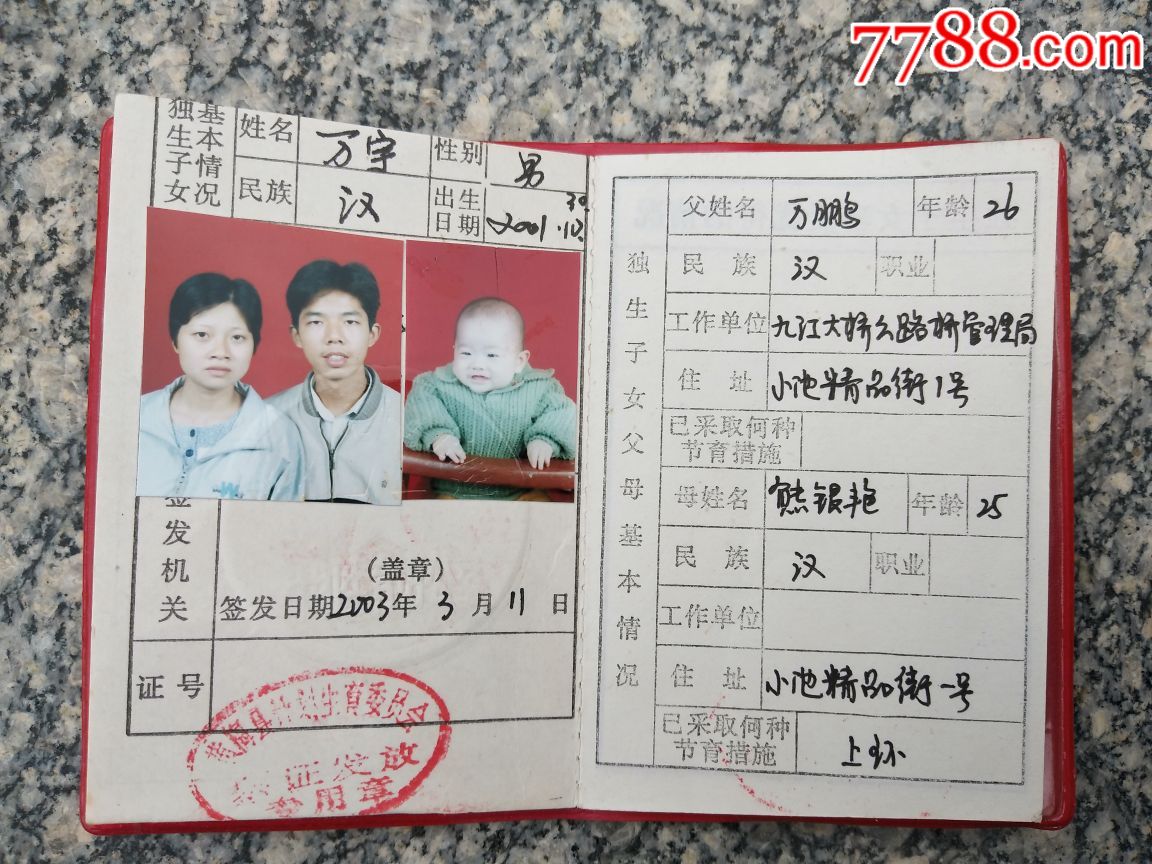 7788.com
独生子女
基本情况
姓名 万宇 性别 男
民族 汉 出生日期 2001.10.30
签发机关
(盖章)
签发日期2003年 3 月 11 日
证号
县计划生育委员会
证发放
专用章
独生子女父母基本情况
父姓名 万鹏 年龄 26
民族 汉 职业
工作单位 九江大桥公路桥管理局
住址 小池精品街1号
已采取何种
节育措施
母姓名 熊银艳 年龄 25
民族 汉 职业
工作单位
住址 小池精品街一号
已采取何种
节育措施 上环